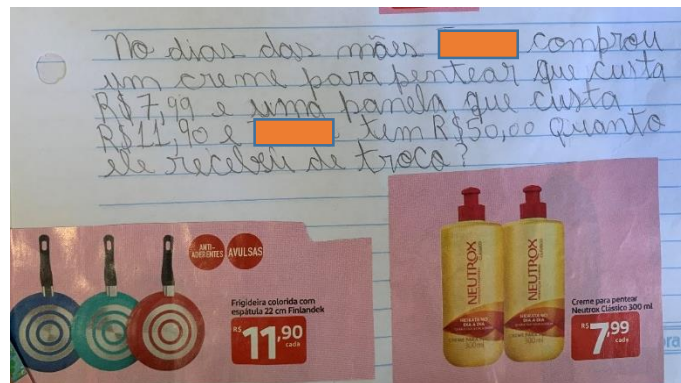 No dias das mães comprou
um creme para pentear que custa
R$7,99 e uma panela que custa
R$11,90 e tem R$50,00 quanto
ele recebeu de troco?
ANTI-
ADERENTES
AVULSAS
Frigideira colorida com
espátula 22 cm Finlandek
R$ 11,90
cada
NEUTROX
NEUTROX
Creme para pentear
Neutrox Clássico 300 ml
R$ 7,99
cada